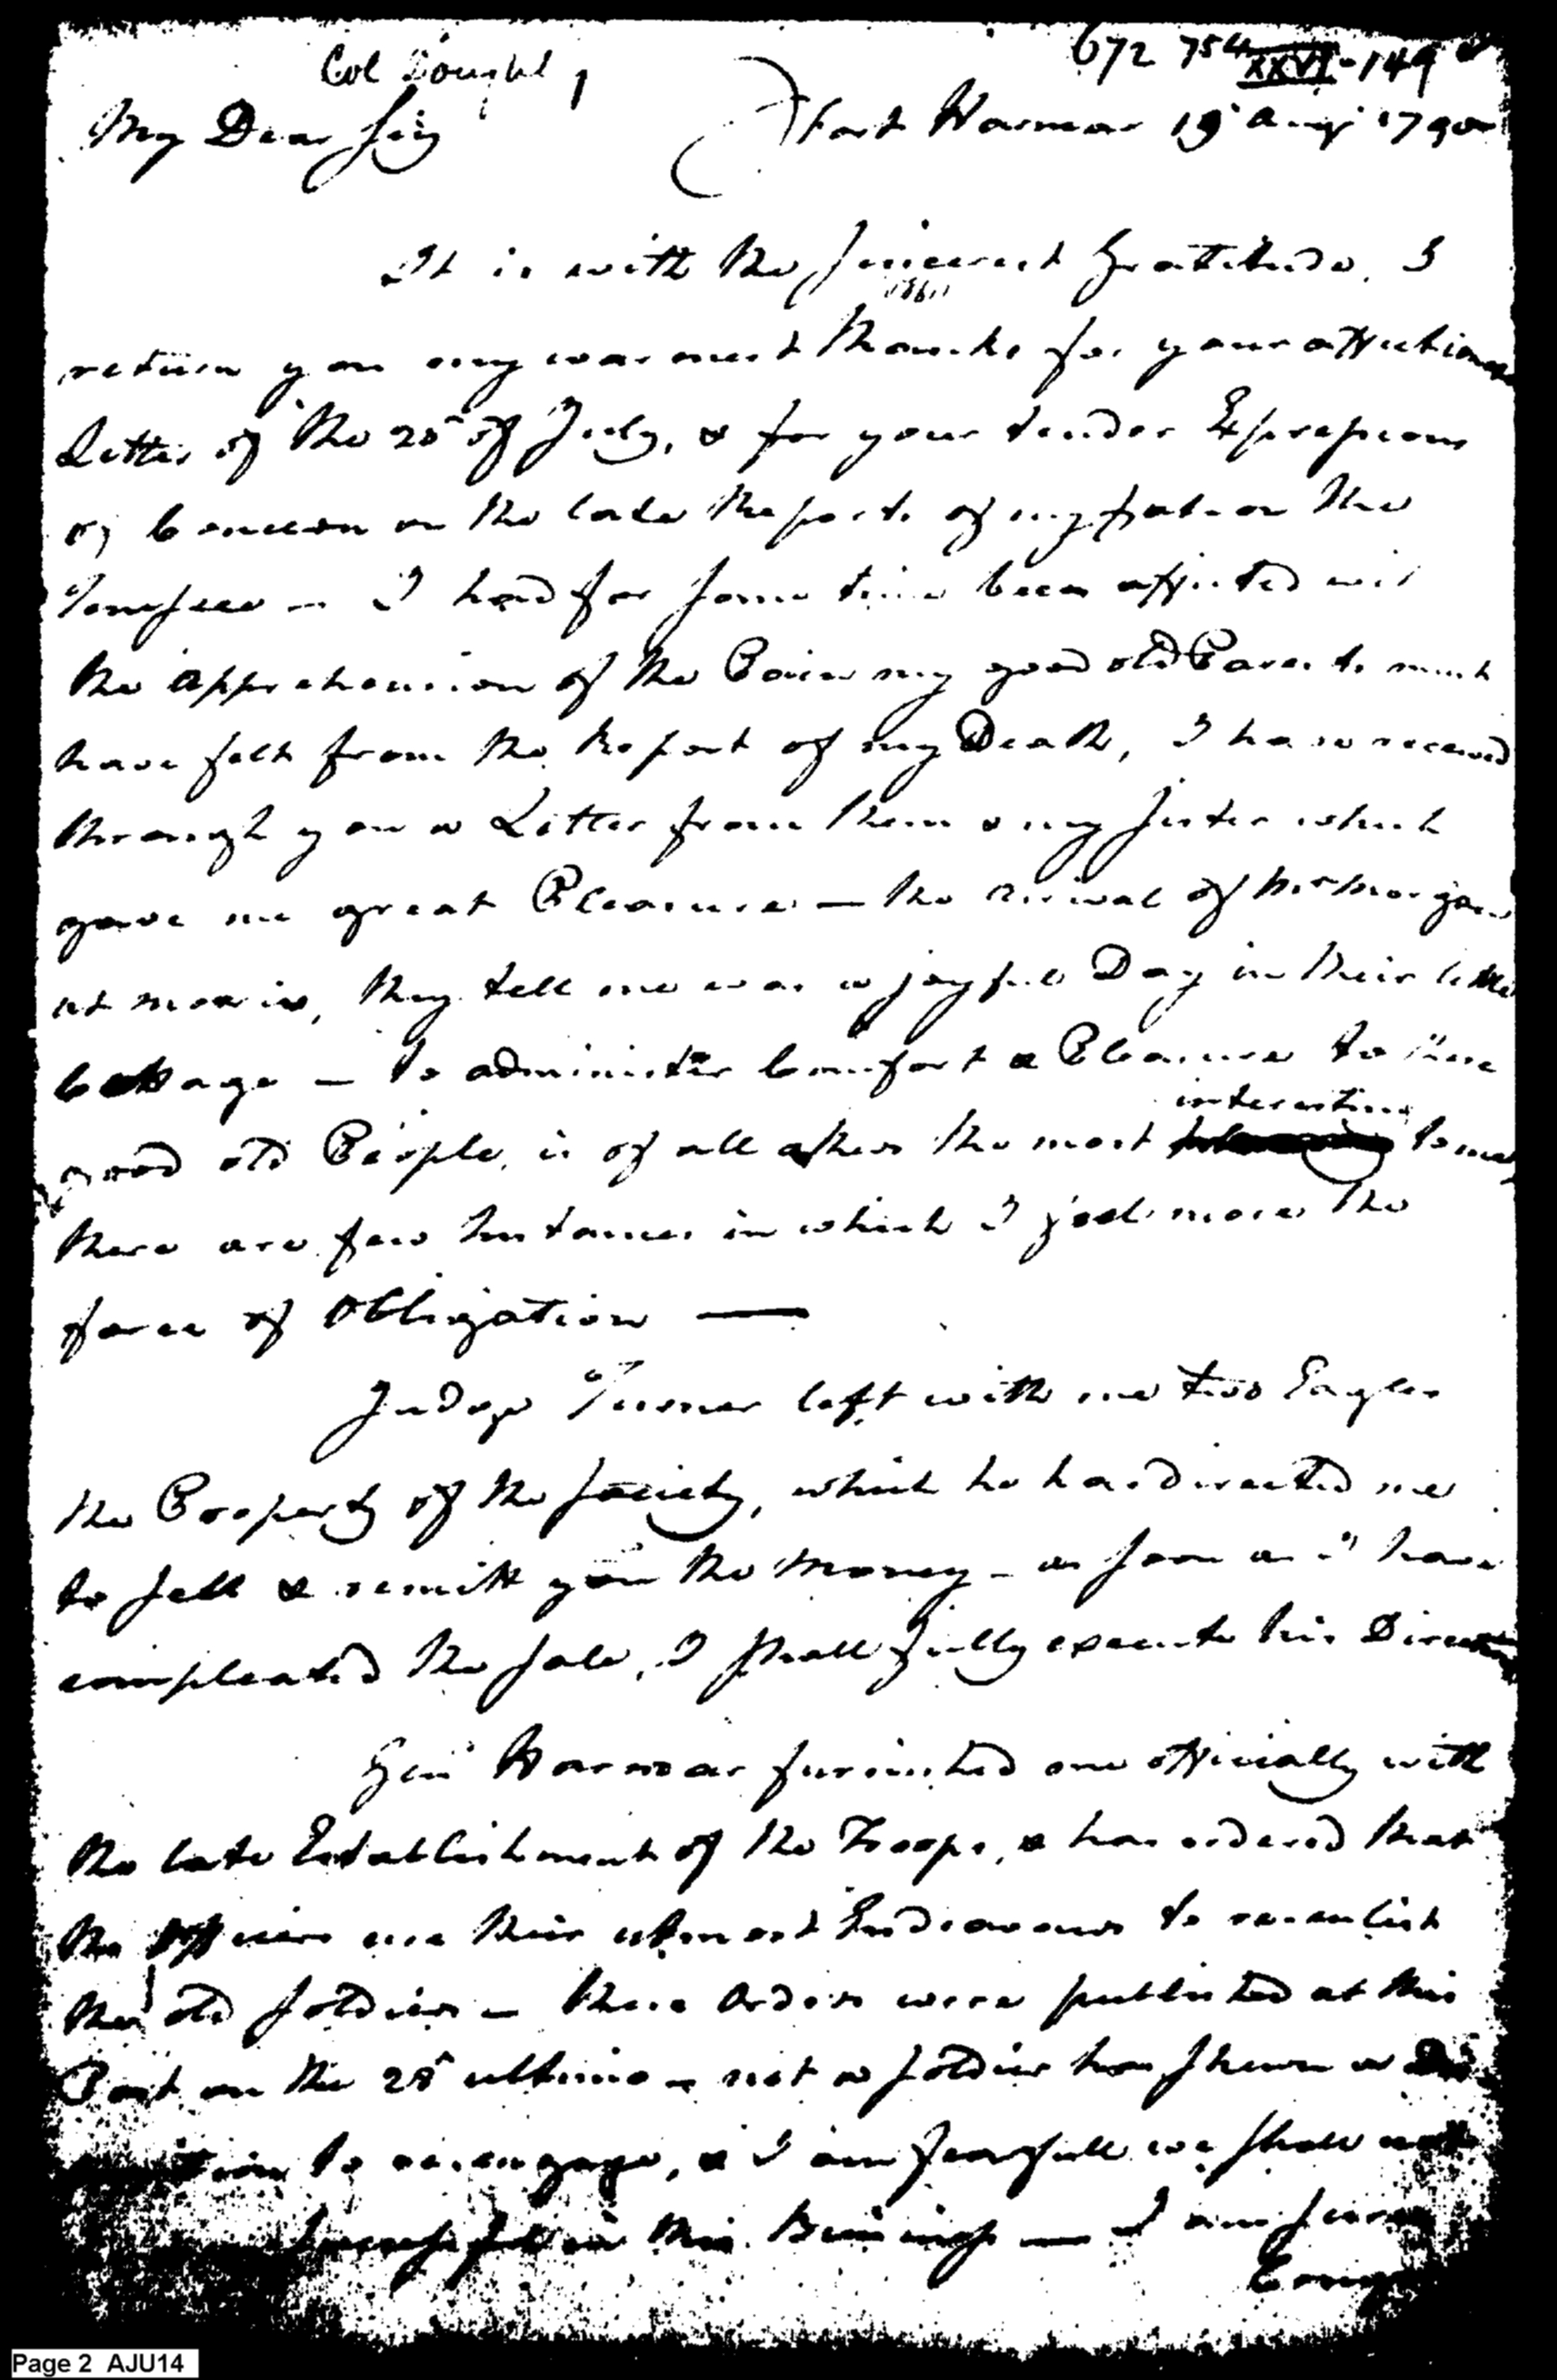 672 754 XXVI-149
Col Doughty
My Dear Sir Fort Harmar 19 Aug 1790
It is with the sincerest Gratitude, I
return you my warmest thanks for your affectionate
Letter of the 25 of July, & for your tender Expressions
of Concern on the late Reports of my fate on the
Tenessee - I had for some time been afflicted with
the apprehension of the Pain my good old Parents must
have felt from the Report of my Death, I have received
through you a Letter from them & my Sister which
gave me great Pleasure - the arrival of Mr Morgan
at they tell me was a joyful Day in their little
Cottage - to administer Comfort & Pleasure to these
interesting
good old People, is of all others the most to me
there are few Instances in which I feel more the
force of Obligation —
Judge Turner left with me two Eagles
the Property of the Society, which he has directed me
to sell & remitt you the Money - as soon as I have
compleated the sale, I shall fully execute his Direction
Genl Harmar furnished me officially with
the late Establishment of the Troops, & has ordered that
the Officers use their utmost Endeavours to reenlist
the old soldiers - these Orders were published at this
Post on the 28 ultimo - not a soldier has shewn a Dis
to re-engage, & I am fearfull we shall not
in this Business — I am